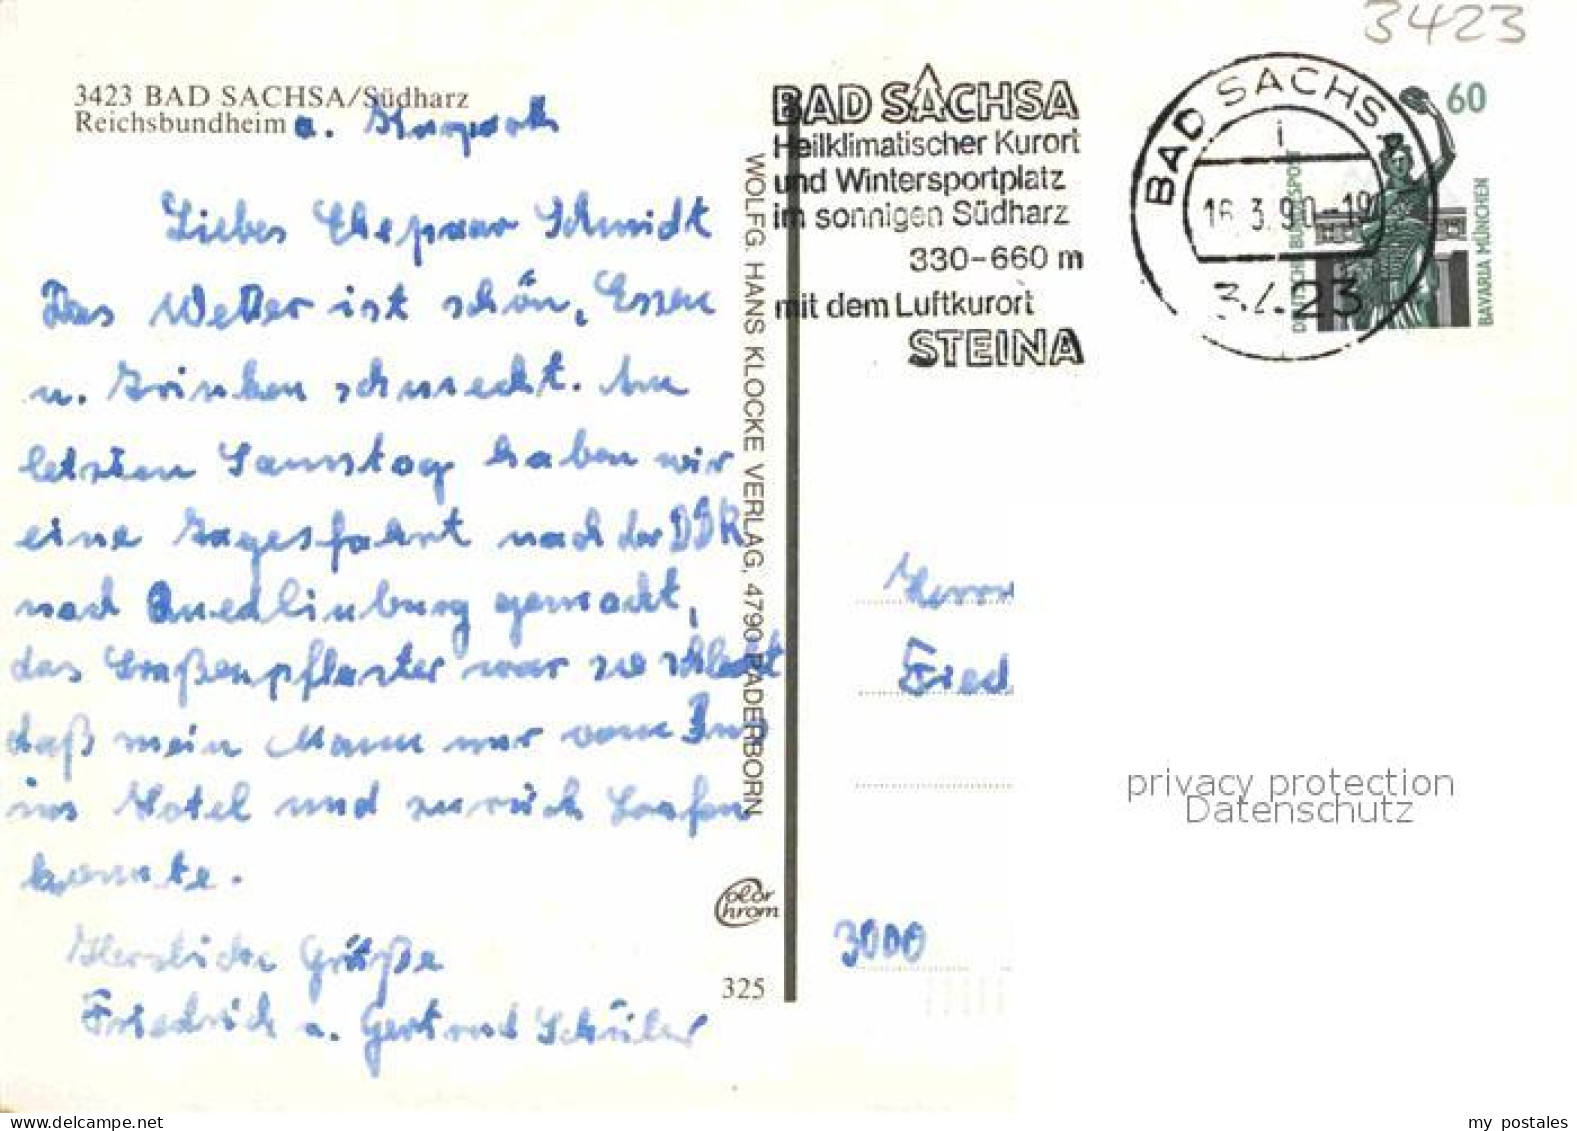 3423
3423 BAD SACHSA/Südharz
Reichsbundheim a.
Liebes Ehepaar Schmidt
Das Wetter ist schön, Essen
u. Trinken schmeckt. Am
letzten Samstag haben wir
eine Tagesfahrt nach der DDR
nach Quedlinburg gemacht,
das Straßenpflaster war so schlecht
daß mein Mann nur vom Bus
ins Hotel und zurück laufen
konnte.
Herzliche Grüße
Friedrich u. Gertrud Schüler
WOLFG. HANS KLOCKE VERLAG, 4790 PADERBORN
Color
Chrom
325
BAD SACHSA
Heilklimatischer Kurort
und Wintersportplatz
im sonnigen Südharz
330-660 m
mit dem Luftkurort
STEINA
BAD SACHSA
i
16.3.90-19
3423
60
DEUTSCHE BUNDESPOST
BAVARIA MÜNCHEN
Herrn
Fried
3000
privacy protection
Datenschutz
my postales